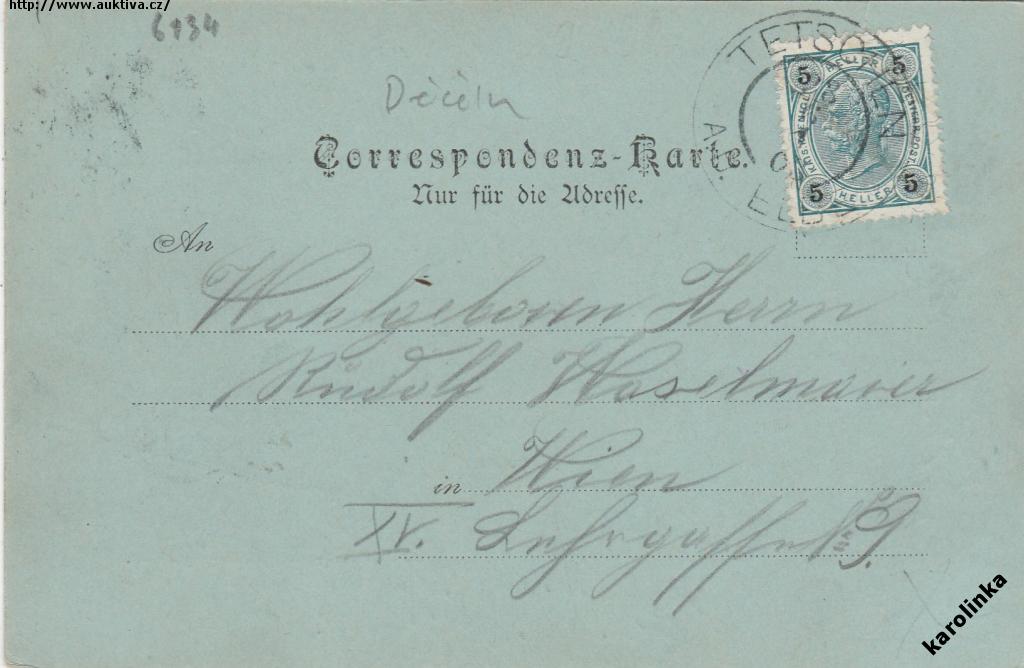 http://www.auktiva.cz/
6134
Děčín
TETSCHEN
A. D. ELBE
5 HELLER 5
KAIS. KOENIGL. OESTERR. POST.
5 HELLER 5
Correspondenz-Karte.
Nur für die Adresse.
An
Wohlgeborn Herrn
Rudolf Haselmaier
in Wien
XV. Lehrgasse № 9.
karolinka